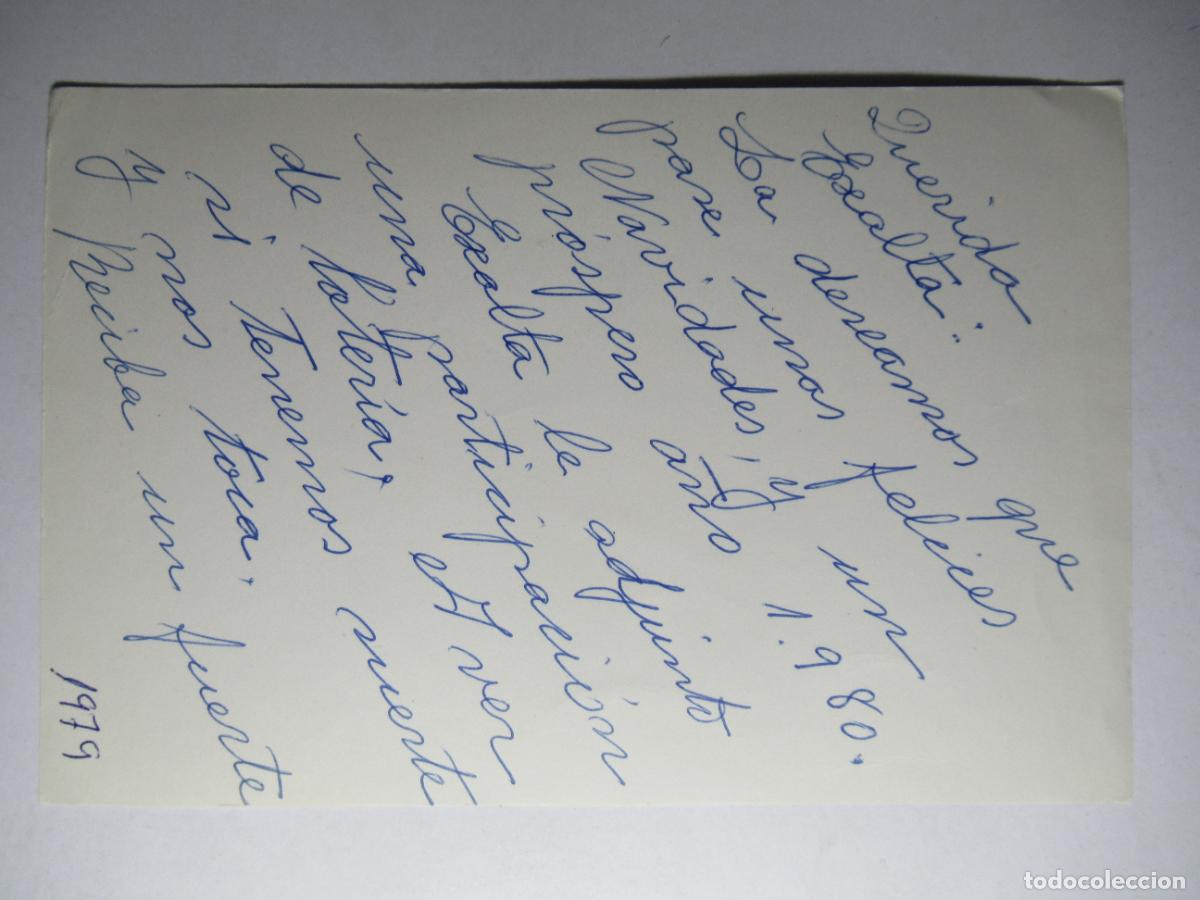 Querida
Exalta:
La deseamos que
pase unas felices
Navidades, y un
próspero año 1.980.
Exalta le adjunto
una participación
de lotería, A ver
si tenemos suerte
y nos toca.
y Reciba un fuerte
1979
todocoleccion